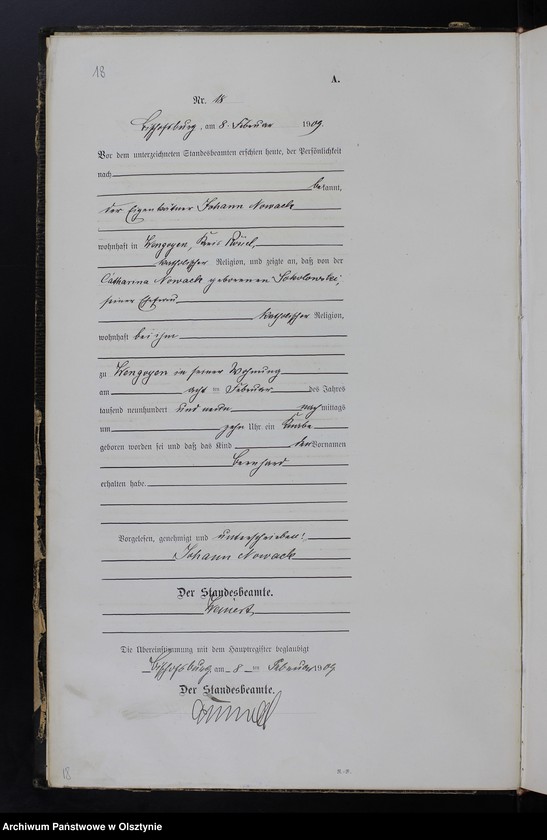 18
A.
Nr. 18
Bischofsburg, am 8. Februar 1909.
Vor dem unterzeichneten Standesbeamten erschien heute, der Persönlichkeit
nach
bekannt,
der Eigenkätner Johann Nowack
wohnhaft in Wengoyen, Kreis Rössel,
katholischer Religion, und zeigte an, daß von der
Catharina Nowack geborenen Sokolowski,
seiner Ehefrau
katholischer Religion,
wohnhaft bei ihm
zu Wengoyen in seiner Wohnung
am acht ten Februar des Jahres
tausend neunhundert und neun nachmittags
um zehn Uhr ein Knabe
geboren worden sei und daß das Kind den Vornamen
Bernhard
erhalten habe.
Vorgelesen, genehmigt und unterschrieben:
Johann Nowack
Der Standesbeamte.
Die Übereinstimmung mit dem Hauptregister beglaubigt
Bischofsburg, am 8 ten Februar 1909
Der Standesbeamte.
18
Archiwum Państwowe w Olsztynie